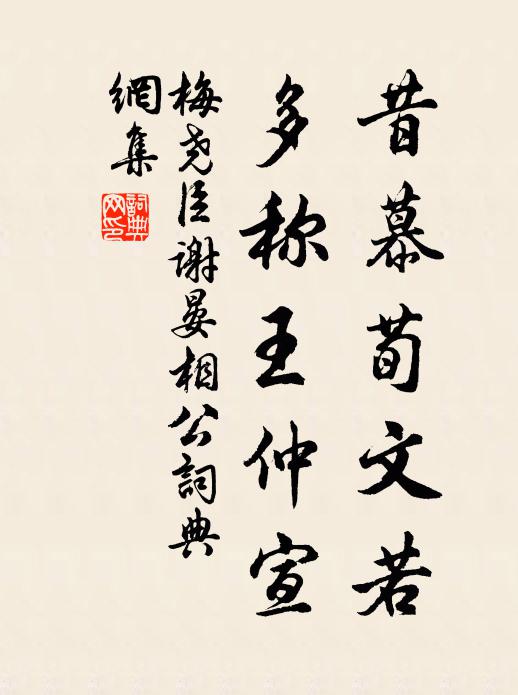 昔慕荀文若
多称王仲宣
梅尧臣谢晏相公詞典
網集
詞典网印